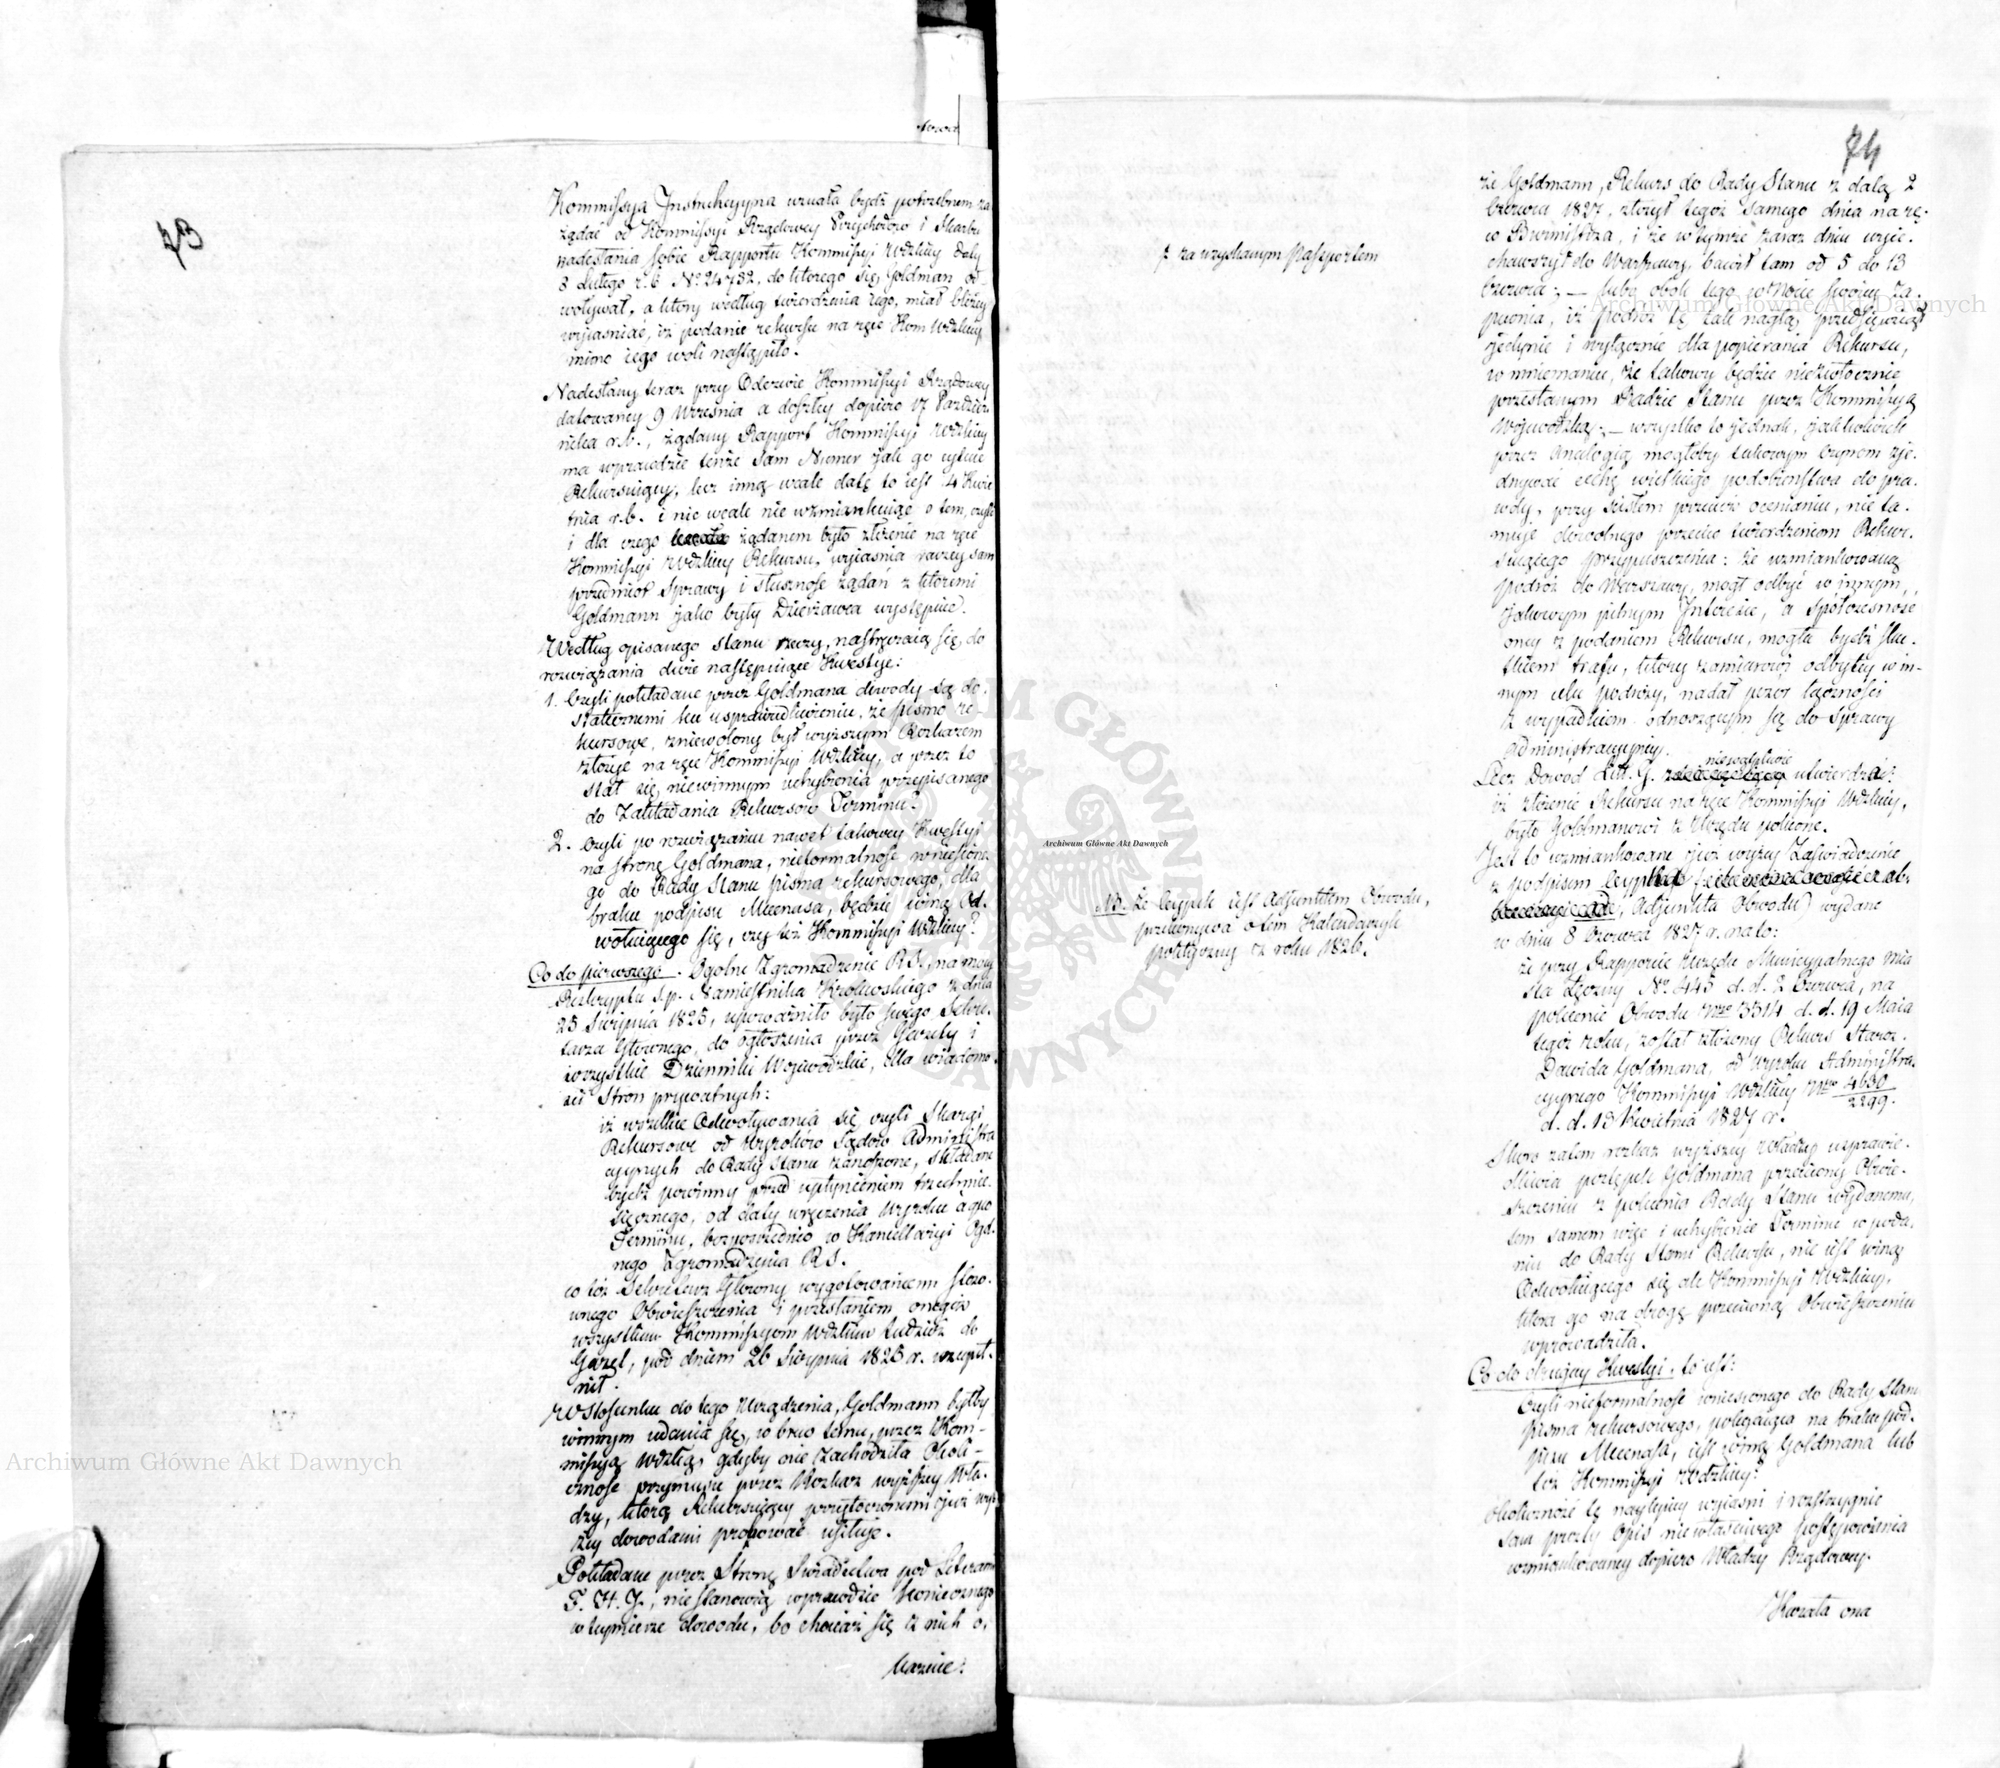 73
Kommissya Instrukcyyna uznała bydź potrzebnem za
żądać od Kommissyi Rządowey Przychodów i Skarbu
nadesłania sobie Rapportu Kommissyi Wdzkiey daty
8 Lutego r.b. No 24732, do którego się Goldman od-
wołował, a który według twierdzenia jego, miał bliżey
wyjaśniać, iż podanie rekursu na ręce Kom Wdzkiey
mimo jego woli nastąpiło.
Nadesłany teraz przy Odezwie Kommissyi Rządowey
datowaney 9 Września a doszłey dopiero 17 Paździer
nika r.b., żądany Rapport Kommissyi Wdzkiey
ma wprawdzie tenże sam Numer jak go cytuie
Rekursuiący, lecz inną wcale datę to iest 4 Kwie
tnia r.b. i nic wcale nie wzmiankuiąc o tem, czyli
i dla czego żądanem było złożenie na ręce
Kommissyi Wdzkiey Rekursu, wyiaśnia raczey sam
przedmiot Sprawy i słuszność żądań z któremi
Goldmann jako były Dzierżawca występuie.
Według opisanego stanu rzeczy, nastręczaią się do
rozwiązania dwie następuiące Kwestye:
1. Czyli pokładane przez Goldmana dowody są do-
statecznemi ku usprawiedliwieniu, że pismo re-
kursowe, zniewolony był wyższym Rozkazem
złożyć na ręce Kommissyi Wdzkiey, a przez to
stał się niewinnym uchybienia przepisanego
do Zakładania Rekursów Terminu.
2. Czyli po rozwiązaniu nawet takowey Kwestyi
na stronę Goldmana, nieformalność wniesione
go do Rady Stanu pisma rekursowego, dla
braku podpisu Mecenasa, będzie winą Od-
wołuiącego się, czy też Kommissyi Wdzkiey?
Co do pierwszego. Ogólne Zgromadzenie R.S., na mocy
Reskryptu s.p. Namiestnika Królewskiego z dnia
23 Sierpnia 1823, upoważniło było swego Sekre-
tarza Głównego, do ogłoszenia przez Gazety i
wszystkie Dzienniki Woiewódzkie, dla wiadomo-
ści Stron prywatnych:
iż wszelkie Odwoływania się czyli Skargi
Rekursowe od Wyroków Sądów Administra
cyynych do Rady Stanu zanoszone, składane
bydź powinny przed upłynieniem trzechmie-
sięcznego, od daty wręczenia Wyroku a quo
Terminu, bezpośrednio w Kancellaryi Ogól-
nego Zgromadzenia R.S.
co też Sekretarz Główny wygotowaniem stoso-
wnego Obwieszczenia i przesłaniem onegoż
wszystkim Kommissyom Wdzkim tudzież do
Gazet, pod dniem 26 Sierpnia 1823 r. uzupeł-
nił.
W stosunku do tego Urządzenia, Goldmann byłby
winnym udania się, w brew temu, przez Kom-
missyą Wdzką, gdyby nie zachodziła Okoli-
czność przymusu przez Rozkaz wyższey Wła-
dzy, którą Rekursuiący przytoczonemi już wy-
żey dowodami probować usiłuie.
Pokładane przez Stronę Świadectwa pod Literami
F. H. J., nie stanowią wprawdzie koniecznego
w tey mierze dowodu, bo chociaż się z nich o-
kazuie:
74
że Goldmann, Rekurs do Rady Stanu z datą 2
Czerwca 1827, złożył tegoż samego dnia na rę-
ce Burmistrza, i że w tymże zaraz dniu wyie-
chawszy do Warszawy, bawił tam od 5 do 13
Czerwca; — lubo obok tego w Nocie swoiey za-
pewnia, iż podróż tę tak nagłą, przedsięwziął
jedynie i wyłącznie dla popierania Rekursu,
w mniemaniu, że takowy będzie niezwłocznie
przesłanym Radzie Stanu przez Kommissyą
Woiewódzką; — wszystko to jednak, jakkolwiek
przez Analogią mogłoby takowym czynom zje-
dnywać cechę wielkiego podobieństwa do pra-
wdy, przy ścisłem przecież ocenianiu, nie ta-
muie dowolnego przeciw twierdzeniom Rekur-
suiącego przypuszczenia: że wzmiankowaną
podróż do Warszawy, mógł odbyć w innym,
żakowym pilnym Interesie, a spółczesność
oney z podaniem Rekursu, mogła bydź sku-
tkiem trafu, który zamiarowi odbytey w in-
nym celu podróży, nadał pozór łączności
z wypadkiem odnoszącym się do Sprawy
administracyyney.
niewątpliwie
Lecz Dowód Litt. G. utwierdza:
iż złożenie Rekursu na ręce Kommissyi Wdzkiey,
było Goldmanowi z Urzędu polecone.
Jest to wzmiankowane już wyżey Zaświadczenie
z podpisem
Adjunkta Obwodu) wydane
w dniu 8 Czerwca 1827 r. na to:
że przy Rapporcie Urzędu Municypalnego Mia
sta Łęczny No 445 d. d. 2 Czerwca, na
polecenie Obwodu Nro 3514 d. d. 19 Maia
tegoż roku, został złożony Rekurs Staroz.
Dawida Goldmana, od Wyroku Administra-
cyynego Kommissyi Wdzkiey Nro 4630/2299.
d. d. 13 Kwietnia 1827 r.
Skoro zatem rozkaz wyższey Władzy usprawie-
dliwia postępek Goldmana przeciwny Obwie-
szczeniu z polecenia Rady Stanu wydanemu,
tem samem więc i uchybienie Terminu w poda-
niu do Rady Stanu Rekursu, nie iest winą
Odwołuiącego się ale Kommissyi Wdzkiey,
która go na drogę przeciwną Obwieszczeniu
wprowadziła.
Co do drugiey Kwestyi, to iest:
Czyli nieformalność wniesionego do Rady Stanu
pisma rekursowego, polegaiąca na braku pod-
pisu Mecenasa, iest winą Goldmana lub
też Kommissyi Wdzkiey?
Okoliczność tę naylepiey wyiaśni i rozstrzygnie
sam prosty Opis niewłaściwego postępowania
wzmiankowaney dopiero Władzy Rządowey.
Kazała ona
za uzyskanym Passportem
NB. że Czypek iest Adjunktem Obwodu,
przekonywa o tem Kalendarzyk
polityczny z roku 1826.
Archiwum Główne Akt Dawnych
Archiwum Główne Akt Dawnych
Archiwum Główne Akt Dawnych